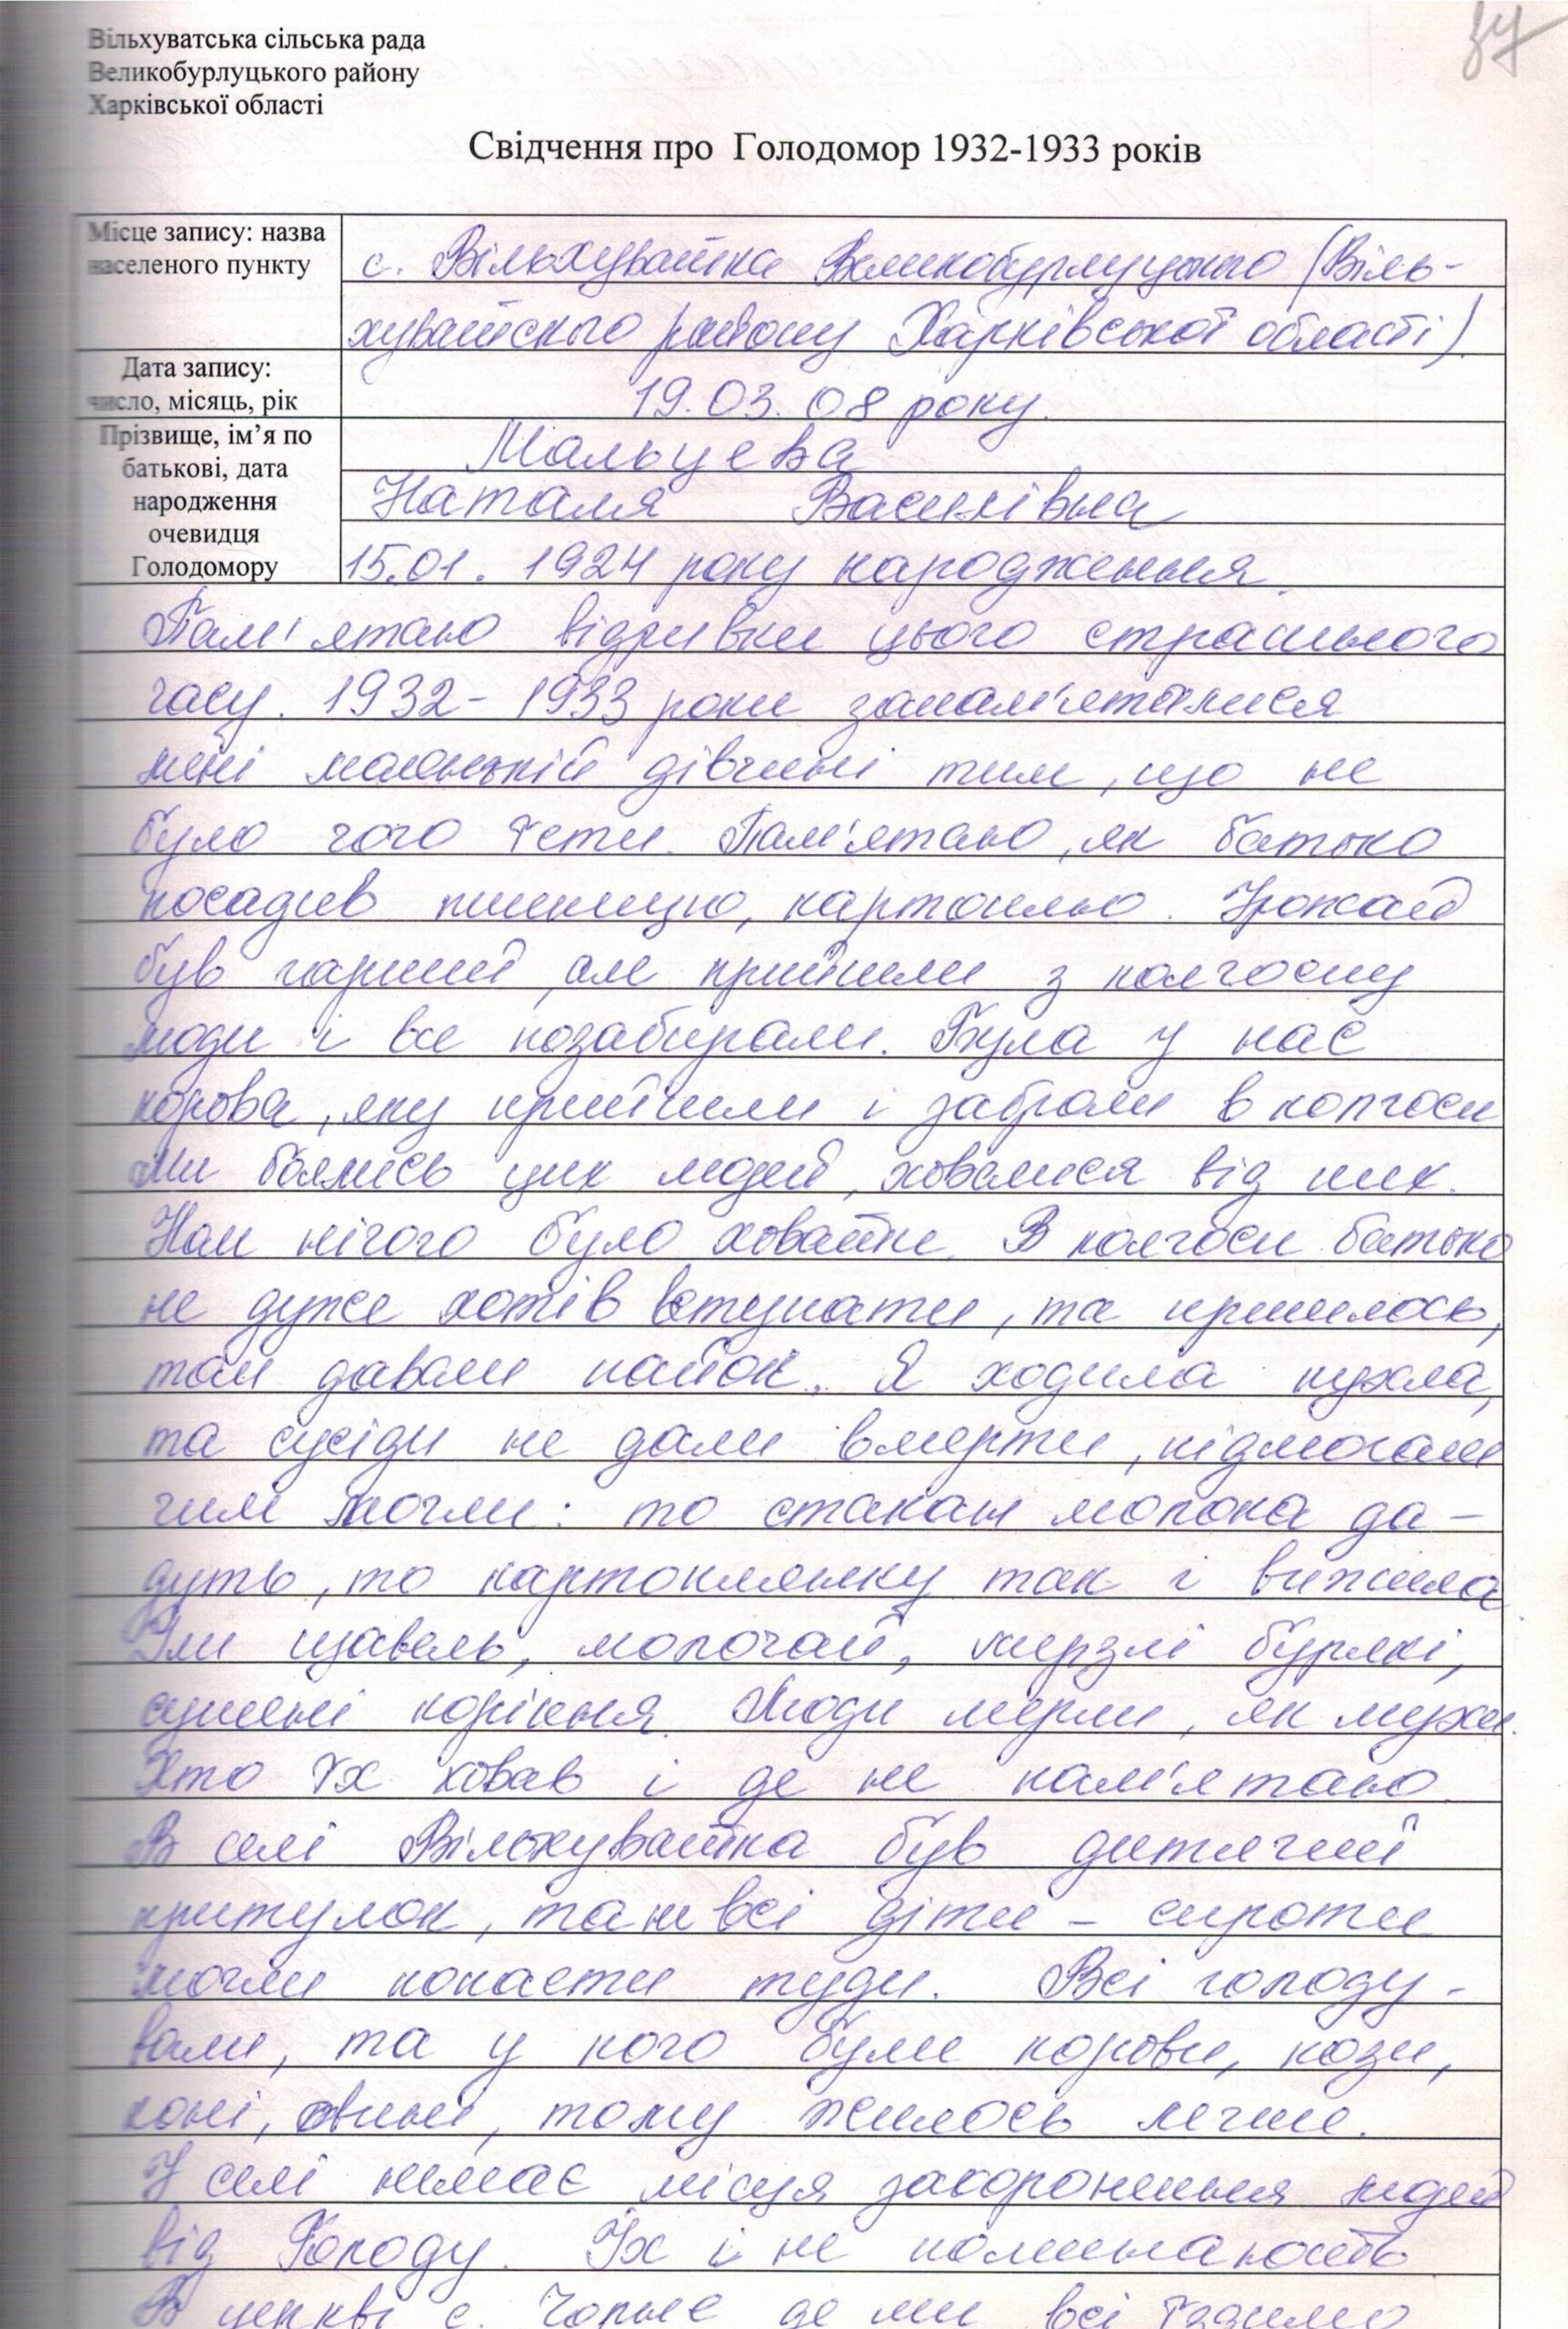 Вільхуватська сільська рада
Великобурлуцького району
Харківської області
Свідчення про Голодомор 1932-1933 років
Місце запису: назва населеного пункту
с. Вільхуватка Великобурлуцького (Віль-
хуватського району Харківської області).
Дата запису: число, місяць, рік
19.03.08 року.
Прізвище, ім’я по батькові, дата народження очевидця Голодомору
Мальцева
Наталя Василівна
15.01.1924 року народження.
Пам'ятаю відривки цього страшного
часу. 1932-1933 роки запам'яталися
мені маленькій дівчині тим, що не
було чого їсти. Пам'ятаю, як батько
посадив пшеницю, картоплю. Урожай
був гарний, але прийшли з колгоспу
люди і все позабирали. Була у нас
корова, яку прийшли і забрали в колгосп
Ми боялись цих людей, ховалися від них.
Нам нічого було ховати. В колгосп батько
не дуже хотів вступати, та пришлось,
там давали пайок. Я ходила пухла,
та сусіди не дали вмерти, підмогали
чим могли: то стакан молока да-
дуть, то картоплинку так і вижила
Їли щавель, молочай, мерзлі буряки,
сушені коріння. Люди мерли, як мухи.
Хто їх ховав і де не пам'ятаю.
В селі Вільхуватка був дитячий
притулок, та не всі діти - сироти
могли попасти туди. Всі голоду-
вали, та у кого були корови, кози,
коні, свині, тому жилось легше.
У селі немає місця захоронення людей
від Голоду. Їх і не поминають
В церкві с. Чорне де ми всі їздимо